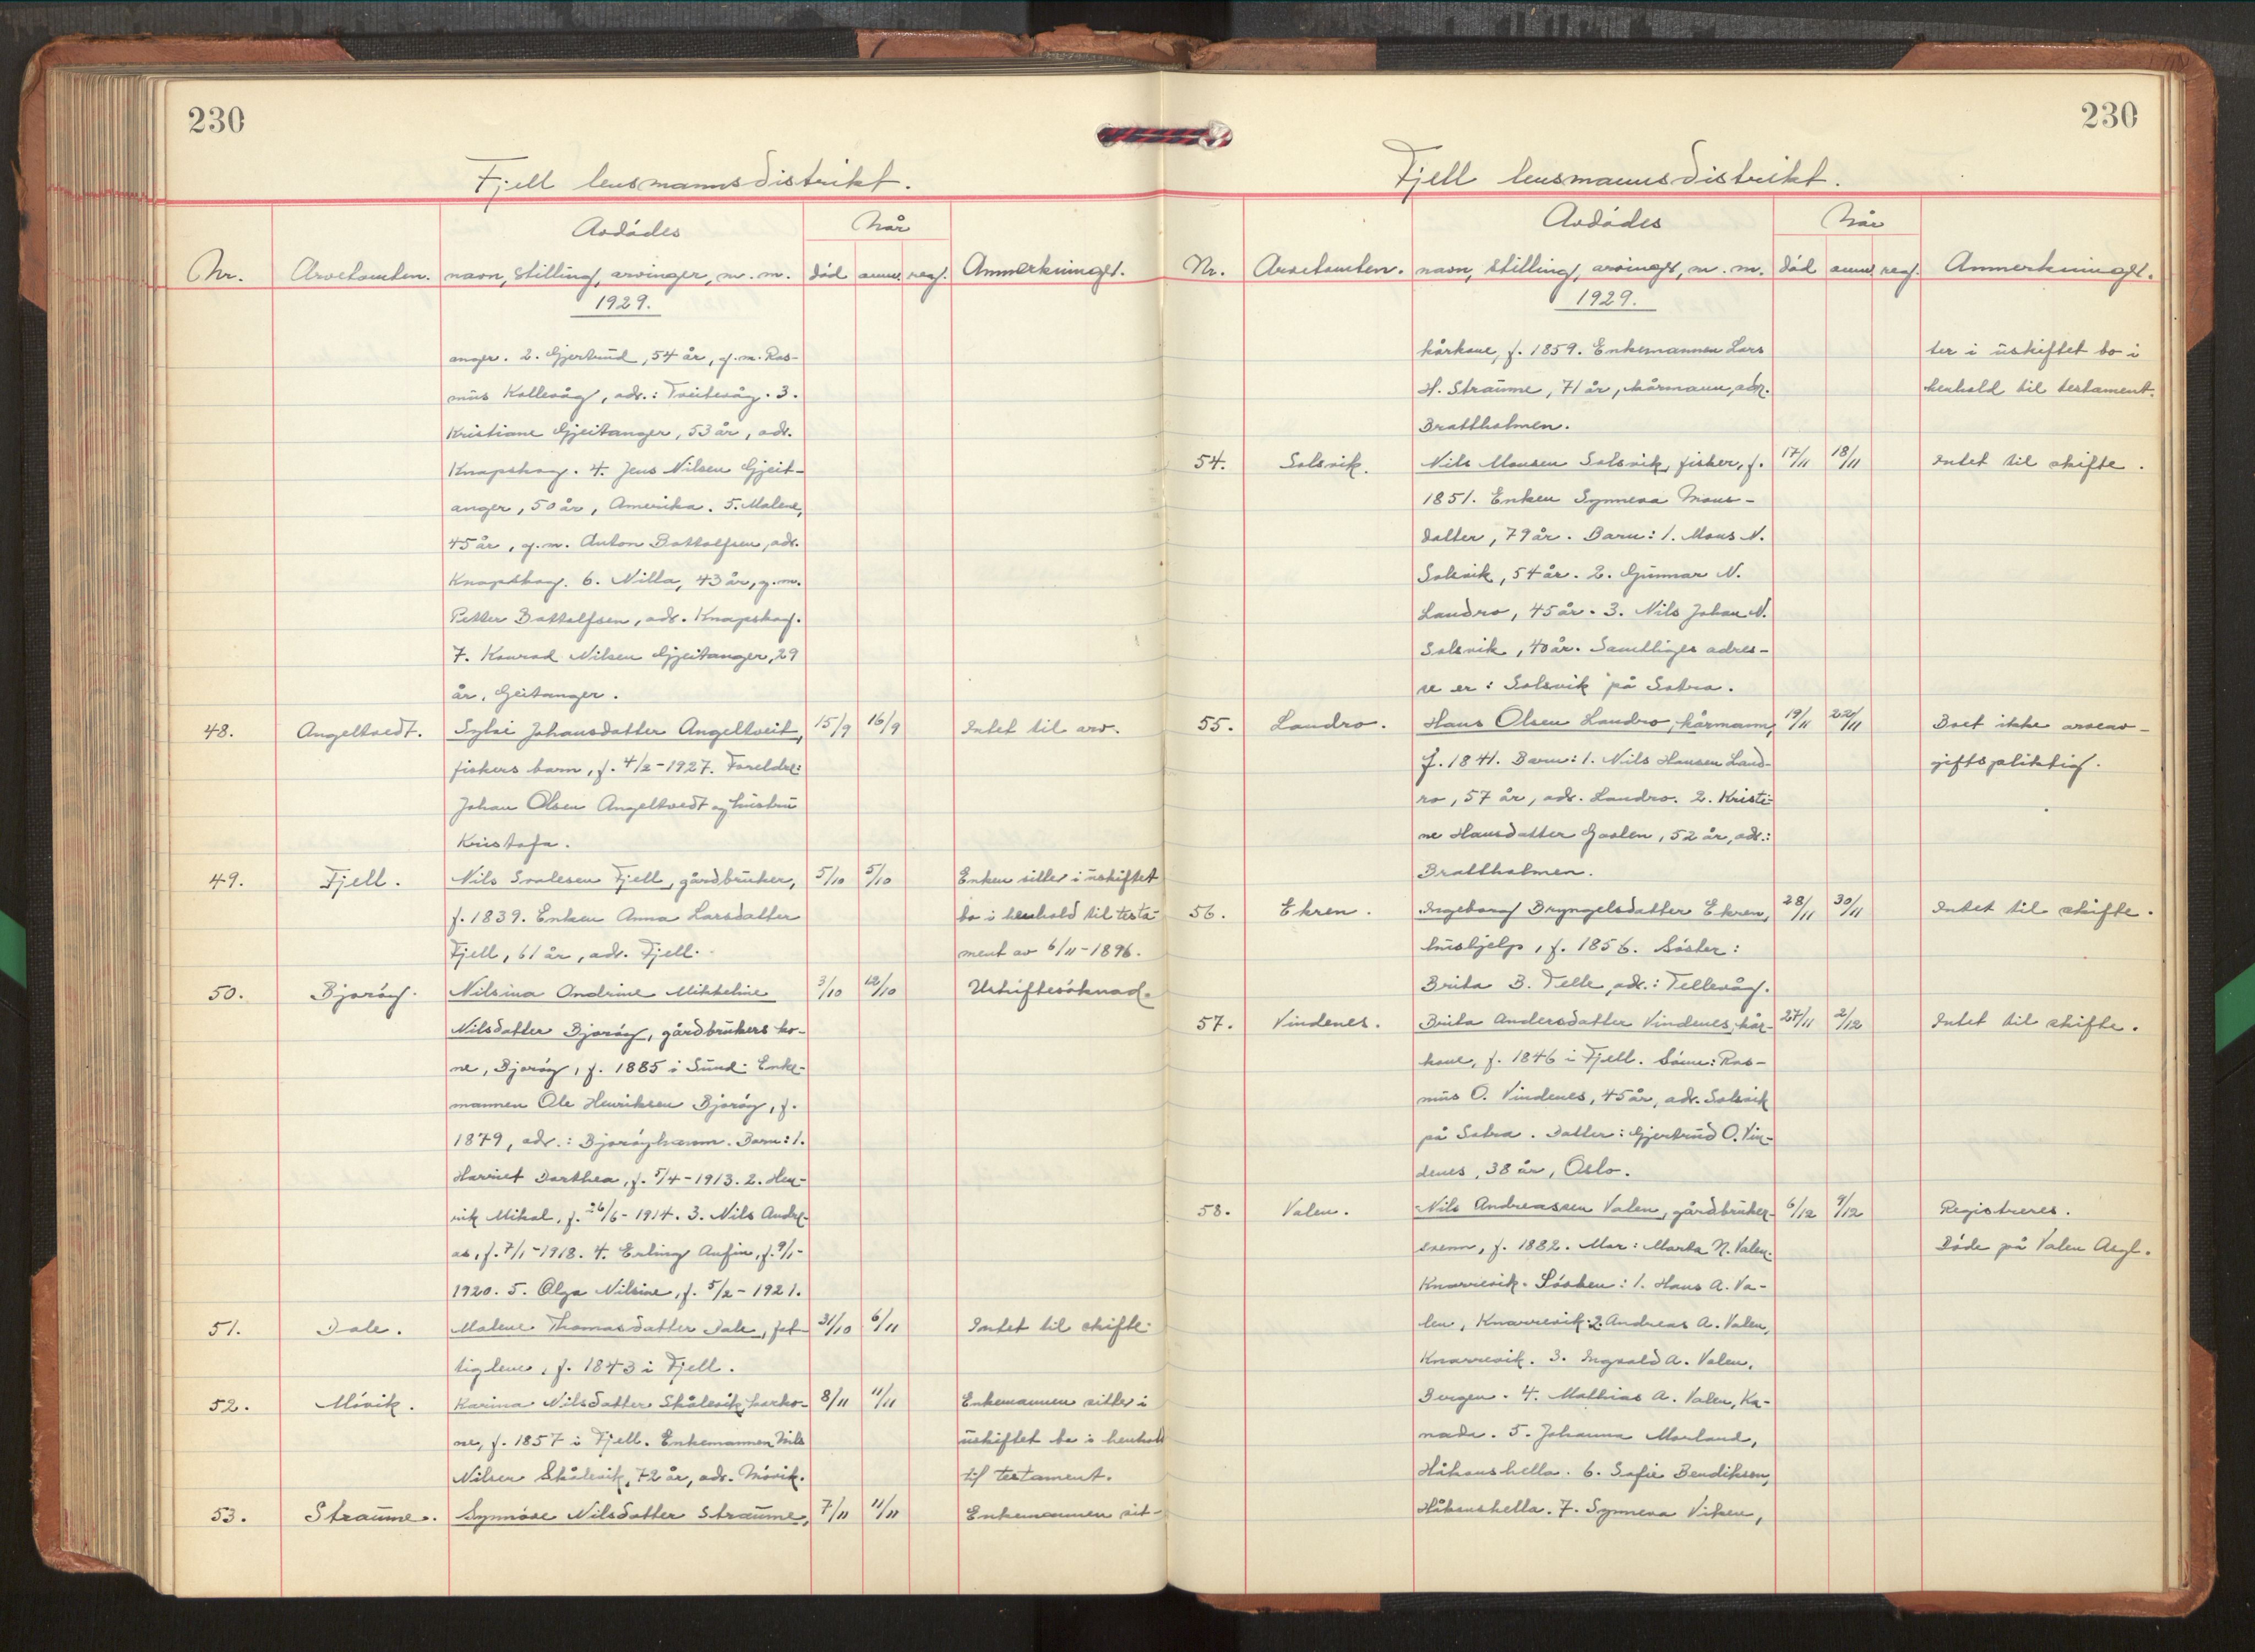 230
Fjell lensmannsdistrikt.
Nr. Arvetomten. Avdødes navn, stilling, arvinger, m. m. Når død anm. reg. Anmerkninger.
1929.
anger. 2. Gjertrud, 54 år, g. m. Ras-
mus Kollevåg, adr.: Tveitevåg. 3.
Kristiane Gjeitanger, 53 år, adr.
Knapskog. 4. Jens Nilsen Gjeit-
anger, 50 år, Amerika. 5. Malene,
45 år, g. m. Anton Bottolfsen, adr.
Knapskog. 6. Nilla, 43 år, g. m.
Petter Bottolfsen, adr. Knapskog.
7. Konrad Nilsen Gjeitanger, 29
år, Geitanger.
48. Angeltvedt. Sylvi Johansdatter Angeltveit, 15/9 16/9 Intet til arv.
fiskers barn, f. 4/2-1927. Foreldre:
Johan Olsen Angeltvedt og hustru
Kristofa.
49. Fjell. Nils Svalesen Fjell, gårdbruker, 5/10 5/10 Enken sitter i uskiftet
f. 1839. Enken Anna Larsdatter bo i henhold til testa-
Fjell, 61 år, adr. Fjell. ment av 6/11-1896.
50. Bjorøy. Nilsina Andrine Mikkeline 3/10 12/10 Uskiftesøknad.
Nilsdatter Bjorøy, gårdbrukers ko-
ne, Bjorøy, f. 1885 i Sund. Enke-
mannen Ole Henriksen Bjorøy, f.
1879, adr.: Bjorøyhamn. Barn: 1.
Harriet Dorthea, f. 5/4-1913. 2. Hen-
rik Mikal, f. 26/6-1914. 3. Nils Andre-
as, f. 7/1-1918. 4. Erling Anfin, f. 9/1-
1920. 5. Olga Nilsine, f. 5/2-1921.
51. Dale. Malene Thomasdatter Dale, fat- 31/10 6/11 Intet til skifte.
tiglem, f. 1843 i Fjell.
52. Møvik. Karina Nilsdatter Skålevik, kårko- 8/11 11/11 Enkemannen sitter i
ne, f. 1857 i Fjell. Enkemannen Nils uskiftet bo i henhold
Nilsen Skålevik, 72 år, adr. Møvik. til testament.
53. Straume. Synnøve Nilsdatter Straume, 7/11 11/11 Enkemannen sit-
230
Fjell lensmannsdistrikt.
Nr. Arvetomten. Avdødes navn, stilling, arvinger, m. m. Når død anm. reg. Anmerkninger.
1929.
kårkone, f. 1859. Enkemannen Lars ter i uskiftet bo i
H. Straume, 71 år, kårmann, adr. henhold til testament.
Brattholmen.
54. Solsvik. Nils Monsen Solsvik, fisker, f. 17/11 18/11 Intet til skifte.
1851. Enken Synneva Mons-
datter, 79 år. Barn: 1. Mons N.
Solsvik, 54 år. 2. Gunnar N.
Landro, 45 år. 3. Nils Johan N.
Solsvik, 40 år. Samtliges adres-
se er: Solsvik på Sotra.
55. Landro. Hans Olsen Landro, kårmann, 19/11 22/11 Boet ikke arveav-
f. 1841. Barn: 1. Nils Hansen Land- giftspliktig.
ro, 57 år, adr. Landro. 2. Kristi-
ne Hansdatter Goolen, 52 år, adr.:
Brattholmen.
56. Ekren. Ingeborg Bryngelsdatter Ekren, 28/11 30/11 Intet til skifte.
hushjelp, f. 1856. Søster:
Brita B. Telle, adr.: Tellevåg.
57. Vindenes. Brita Andersdatter Vindenes, kår- 27/11 2/12 Intet til skifte.
kone, f. 1846 i Fjell. Sønn: Ras-
mus O. Vindenes, 45 år, adr. Solsvik
på Sotra. Datter: Gjertrud O. Vin-
denes, 38 år, Oslo.
58. Valen. Nils Andreassen Valen, gårdbruker- 6/12 9/12 Registreres.
svenn, f. 1882. Mor: Marta N. Valen Døde på Valen Asyl.
Knarrevik. Søsken: 1. Hans A. Va-
len, Knarrevik. 2. Andreas A. Valen,
Knarrevik. 3. Ingvald A. Valen,
Bergen. 4. Mathias A. Valen, Ka-
nada. 5. Johanna Morland,
Håkonshella. 6. Sofie Bendiksen,
Håkonshella. 7. Synneva Viken,